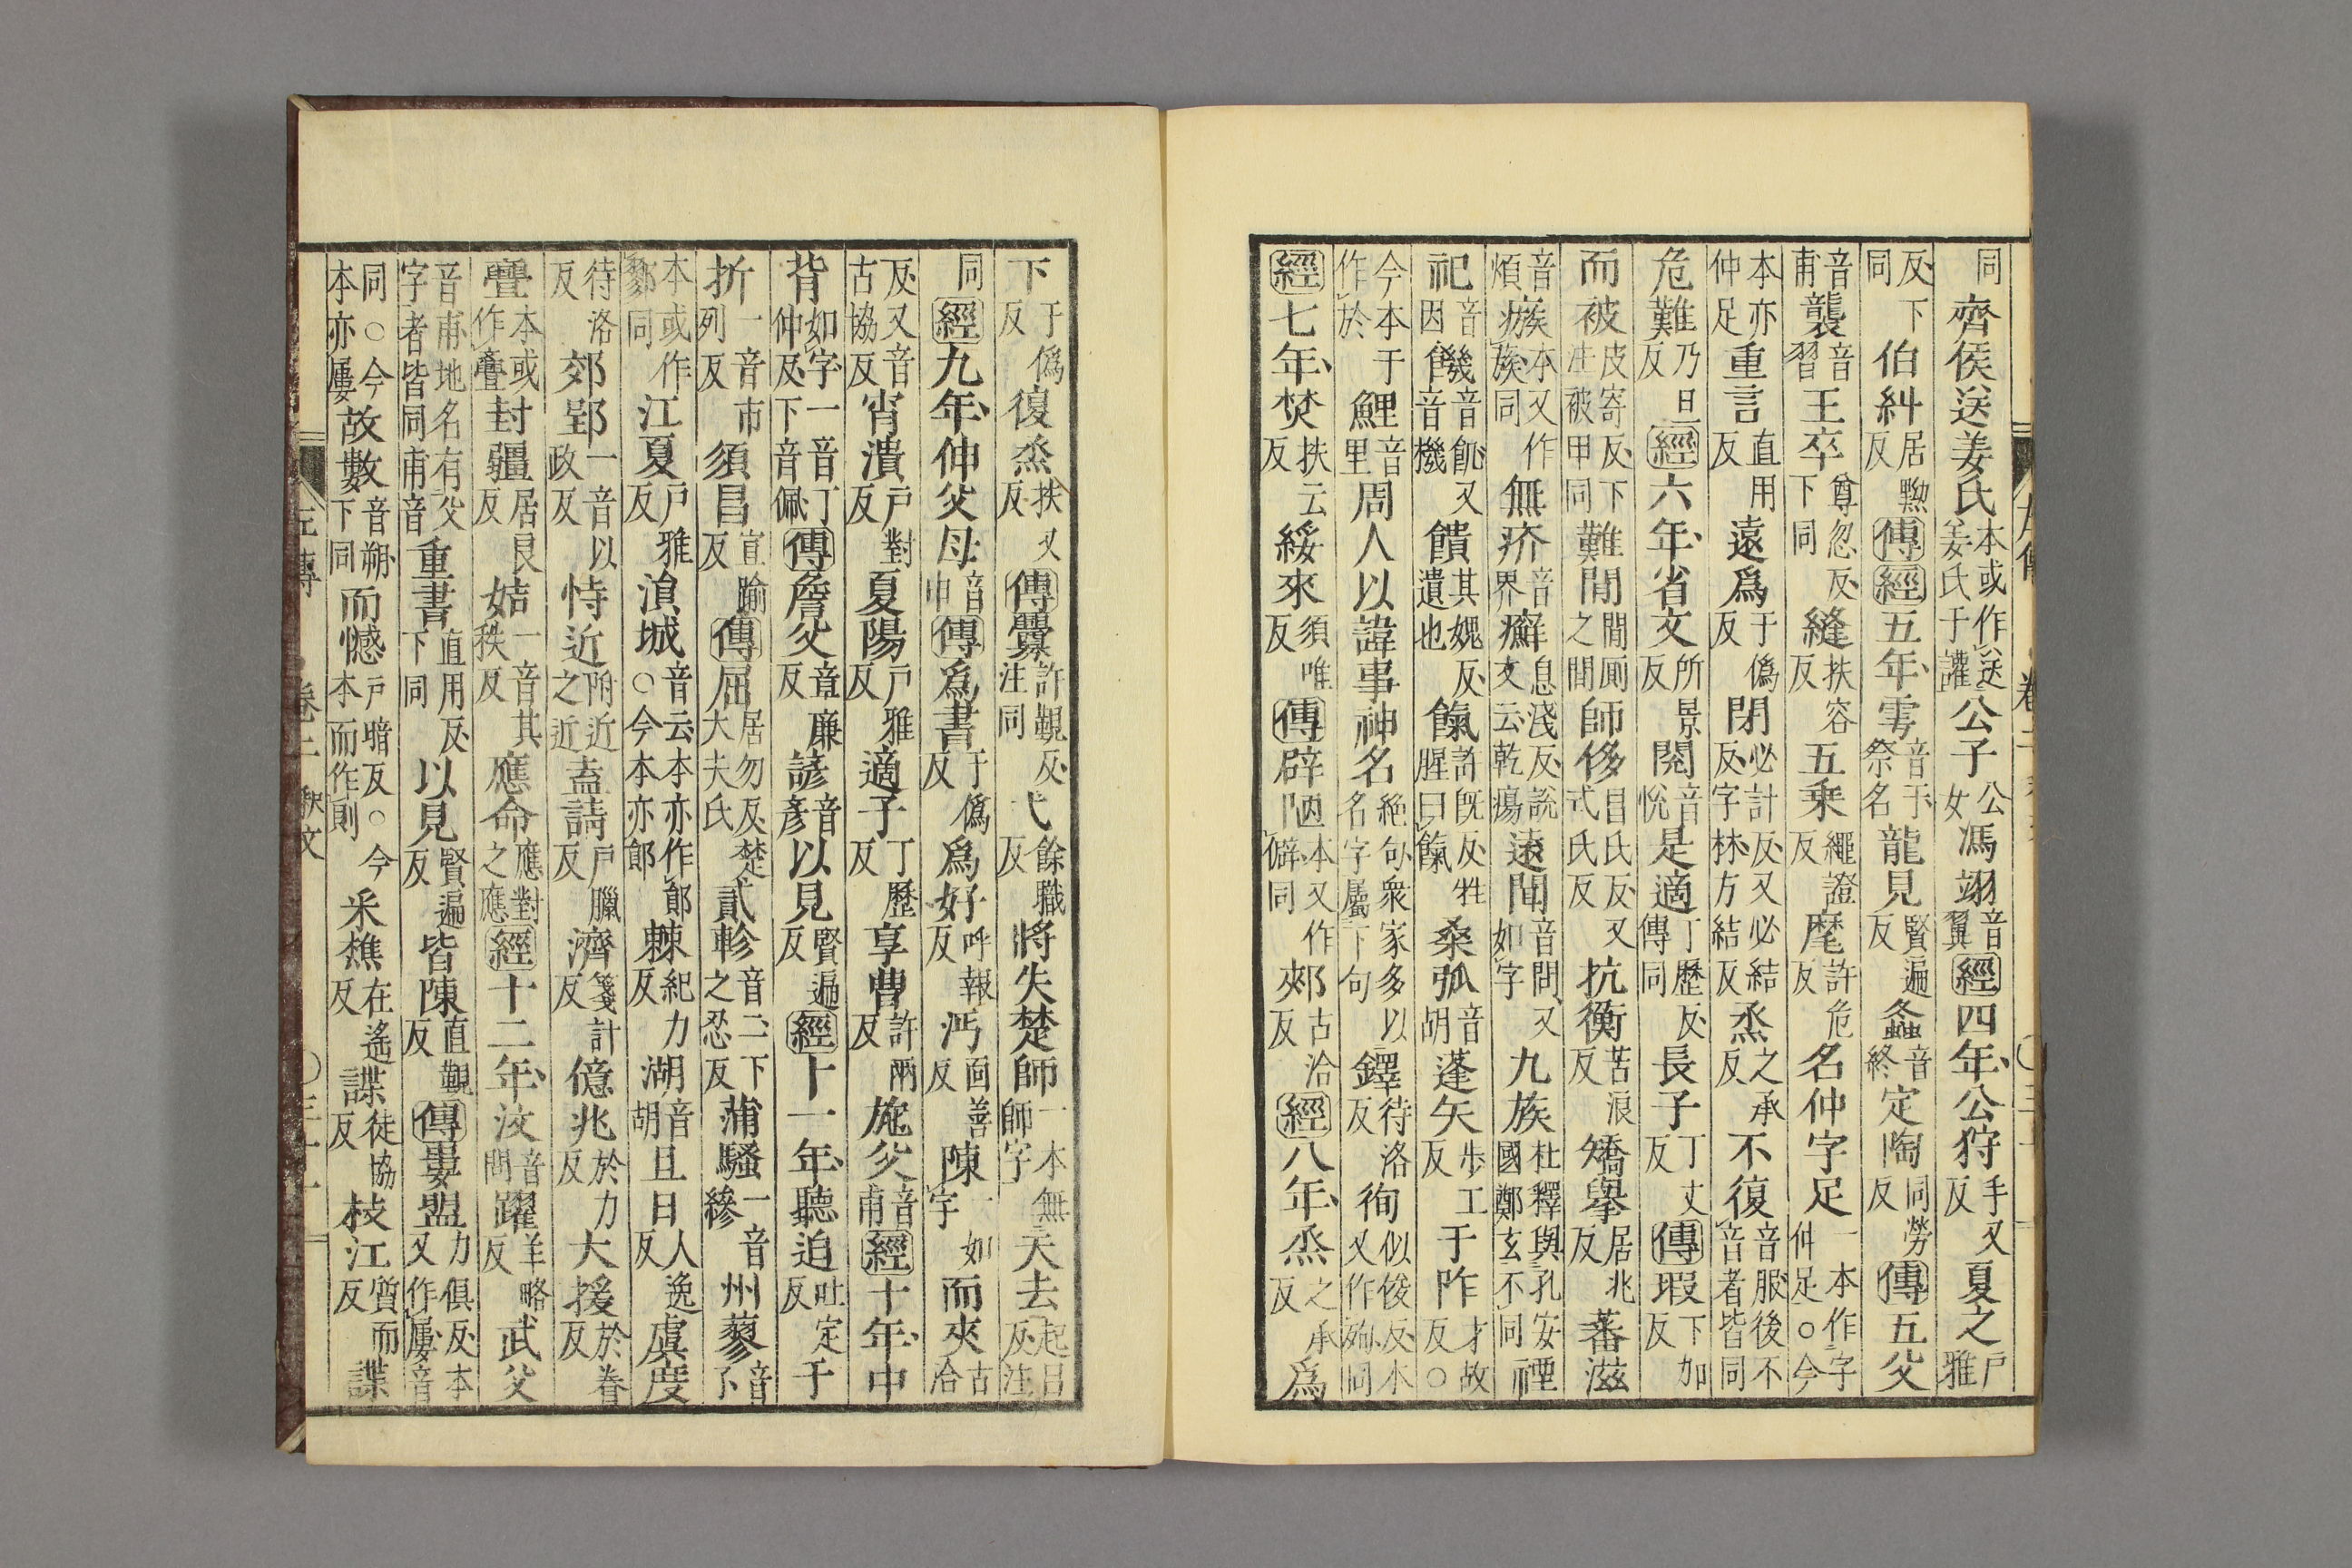 同齊侯送姜氏本或作送姜氏于讙公子公女馮翊音翼經四年公狩手又反夏之戶雅
反下同伯糾居黝反傳經五年雩音于祭名龍見賢遍反螽音終定陶同勞反傳五父
音甫襲音習王卒尊忽反下同縫扶容反五乘繩證反麾許危反名仲字足一本作字仲足○今
本亦仲足重言直用反遠爲于僞反閉必計反又必結反字林方結反烝之承反不復音服後不音者皆同
危難乃旦反經六年省文所景反閱音悅是適丁歷反傳同長子丁丈反傳瑕下加反
而被皮寄反下注被甲同難閒閒厠之閒師侈昌氏反又式氏反抗衡苦浪反矯舉居兆反蕃滋
音煩瘯本又作蔟同無疥音界癬息淺反說文云乾瘍遠聞音問又如字九族杜釋與孔安國鄭玄不同禋
祀音因饑音飢又音機饋其媿反遺也餼許旣反牲腥曰餼桑弧音胡蓬矢步工反于阼才故反○
今本于作於鯉音里周人以諱事神名絕句衆家多以名字屬下句鐸待洛反徇似俊反本又作殉同
經七年焚扶云反綏來須唯反傳辟陋本又作僻同郟古洽反經八年烝之承反爲
下于僞反復烝扶又反傳釁許覲反注同弋餘職反將失楚師一本無師字天去起呂反注
同經九年仲父母音中傳爲書于僞反爲好呼報反沔面善反陳一如字而夾古洽
反又音古協反宵潰戶對反夏陽戶雅反適子丁歷反享曹許兩反施父音甫經十年中
背如字一音丁仲反下音佩傳詹父章廉反諺音彥以見賢遍反經十一年聽迫吐定反于
折一音市列反須昌宣踰反傳屈居勿反楚大夫氏貳軫音二下之忍反蒲騷一音縿州蓼音了
本或作鄝同江夏戶雅反溳城音云本亦作䢵○今本亦郎棘紀力反湖音胡且日人逸反虞度
待洛反郊郢一音以政反恃近附近之近盍請戶臘反濟箋計反億兆於力反大援於眷反
亹本或作斖封疆居艮反姞一音其秩反應命應對之應經十二年汶音問躍羊略反武父
音甫地名有父字者皆同甫音重書直用反下同以見賢遍反皆陳直覲反傳婁盟力俱反本又作屢音
同○今本亦屢故數音朔下同而憾戶暗反○今本而作則采樵在遙反諜徒協反枝江質而反諜
左傳 卷二 釋文 ○三十一